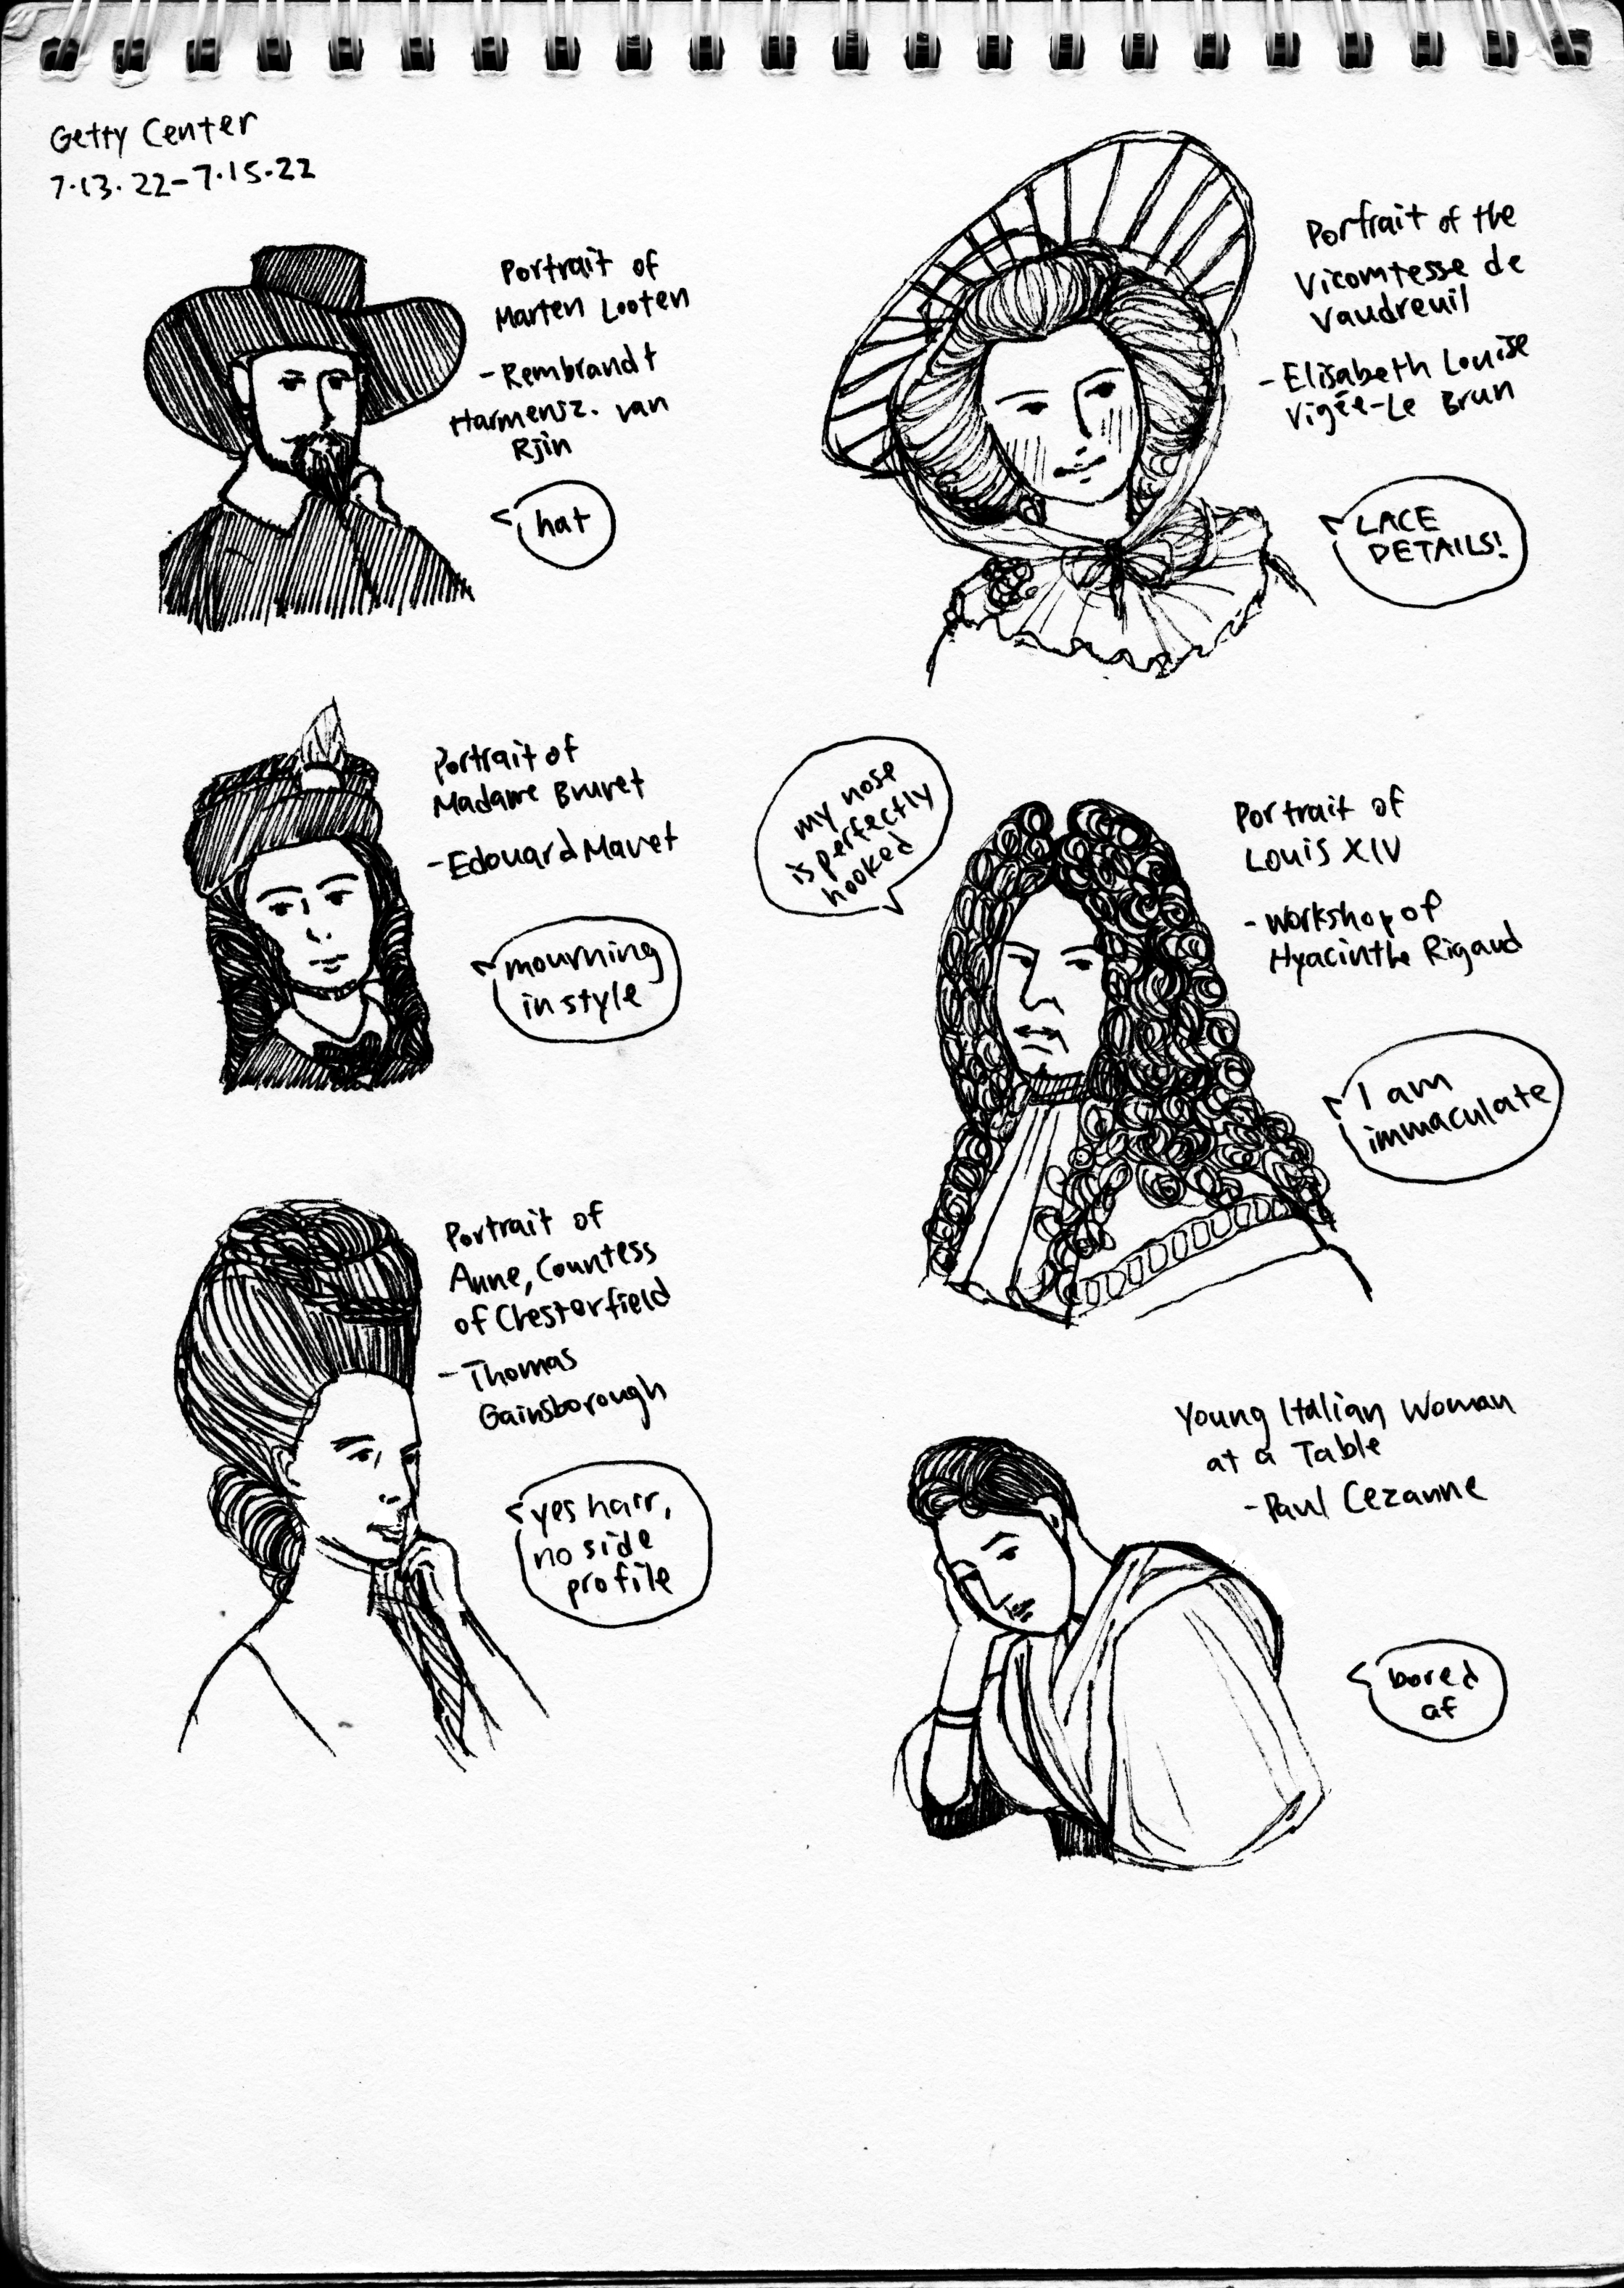 Getty Center
7.13.22-7.15.22
Portrait of
Marten Looten
-Rembrandt
Harmensz. van
Rjin
hat
Portrait of the
Vicomtesse de
Vaudreuil
-Elisabeth Louise
Vigée-Le Brun
LACE
DETAILS!
Portrait of
Madame Brunet
-Edouard Manet
mourning
in style
my nose
is perfectly
hooked
Portrait of
Louis XIV
-Workshop of
Hyacinthe Rigaud
I am
immaculate
Portrait of
Anne, Countess
of Chesterfield
-Thomas
Gainsborough
yes hair,
no side
profile
Young Italian Woman
at a Table
-Paul Cezanne
bored
af